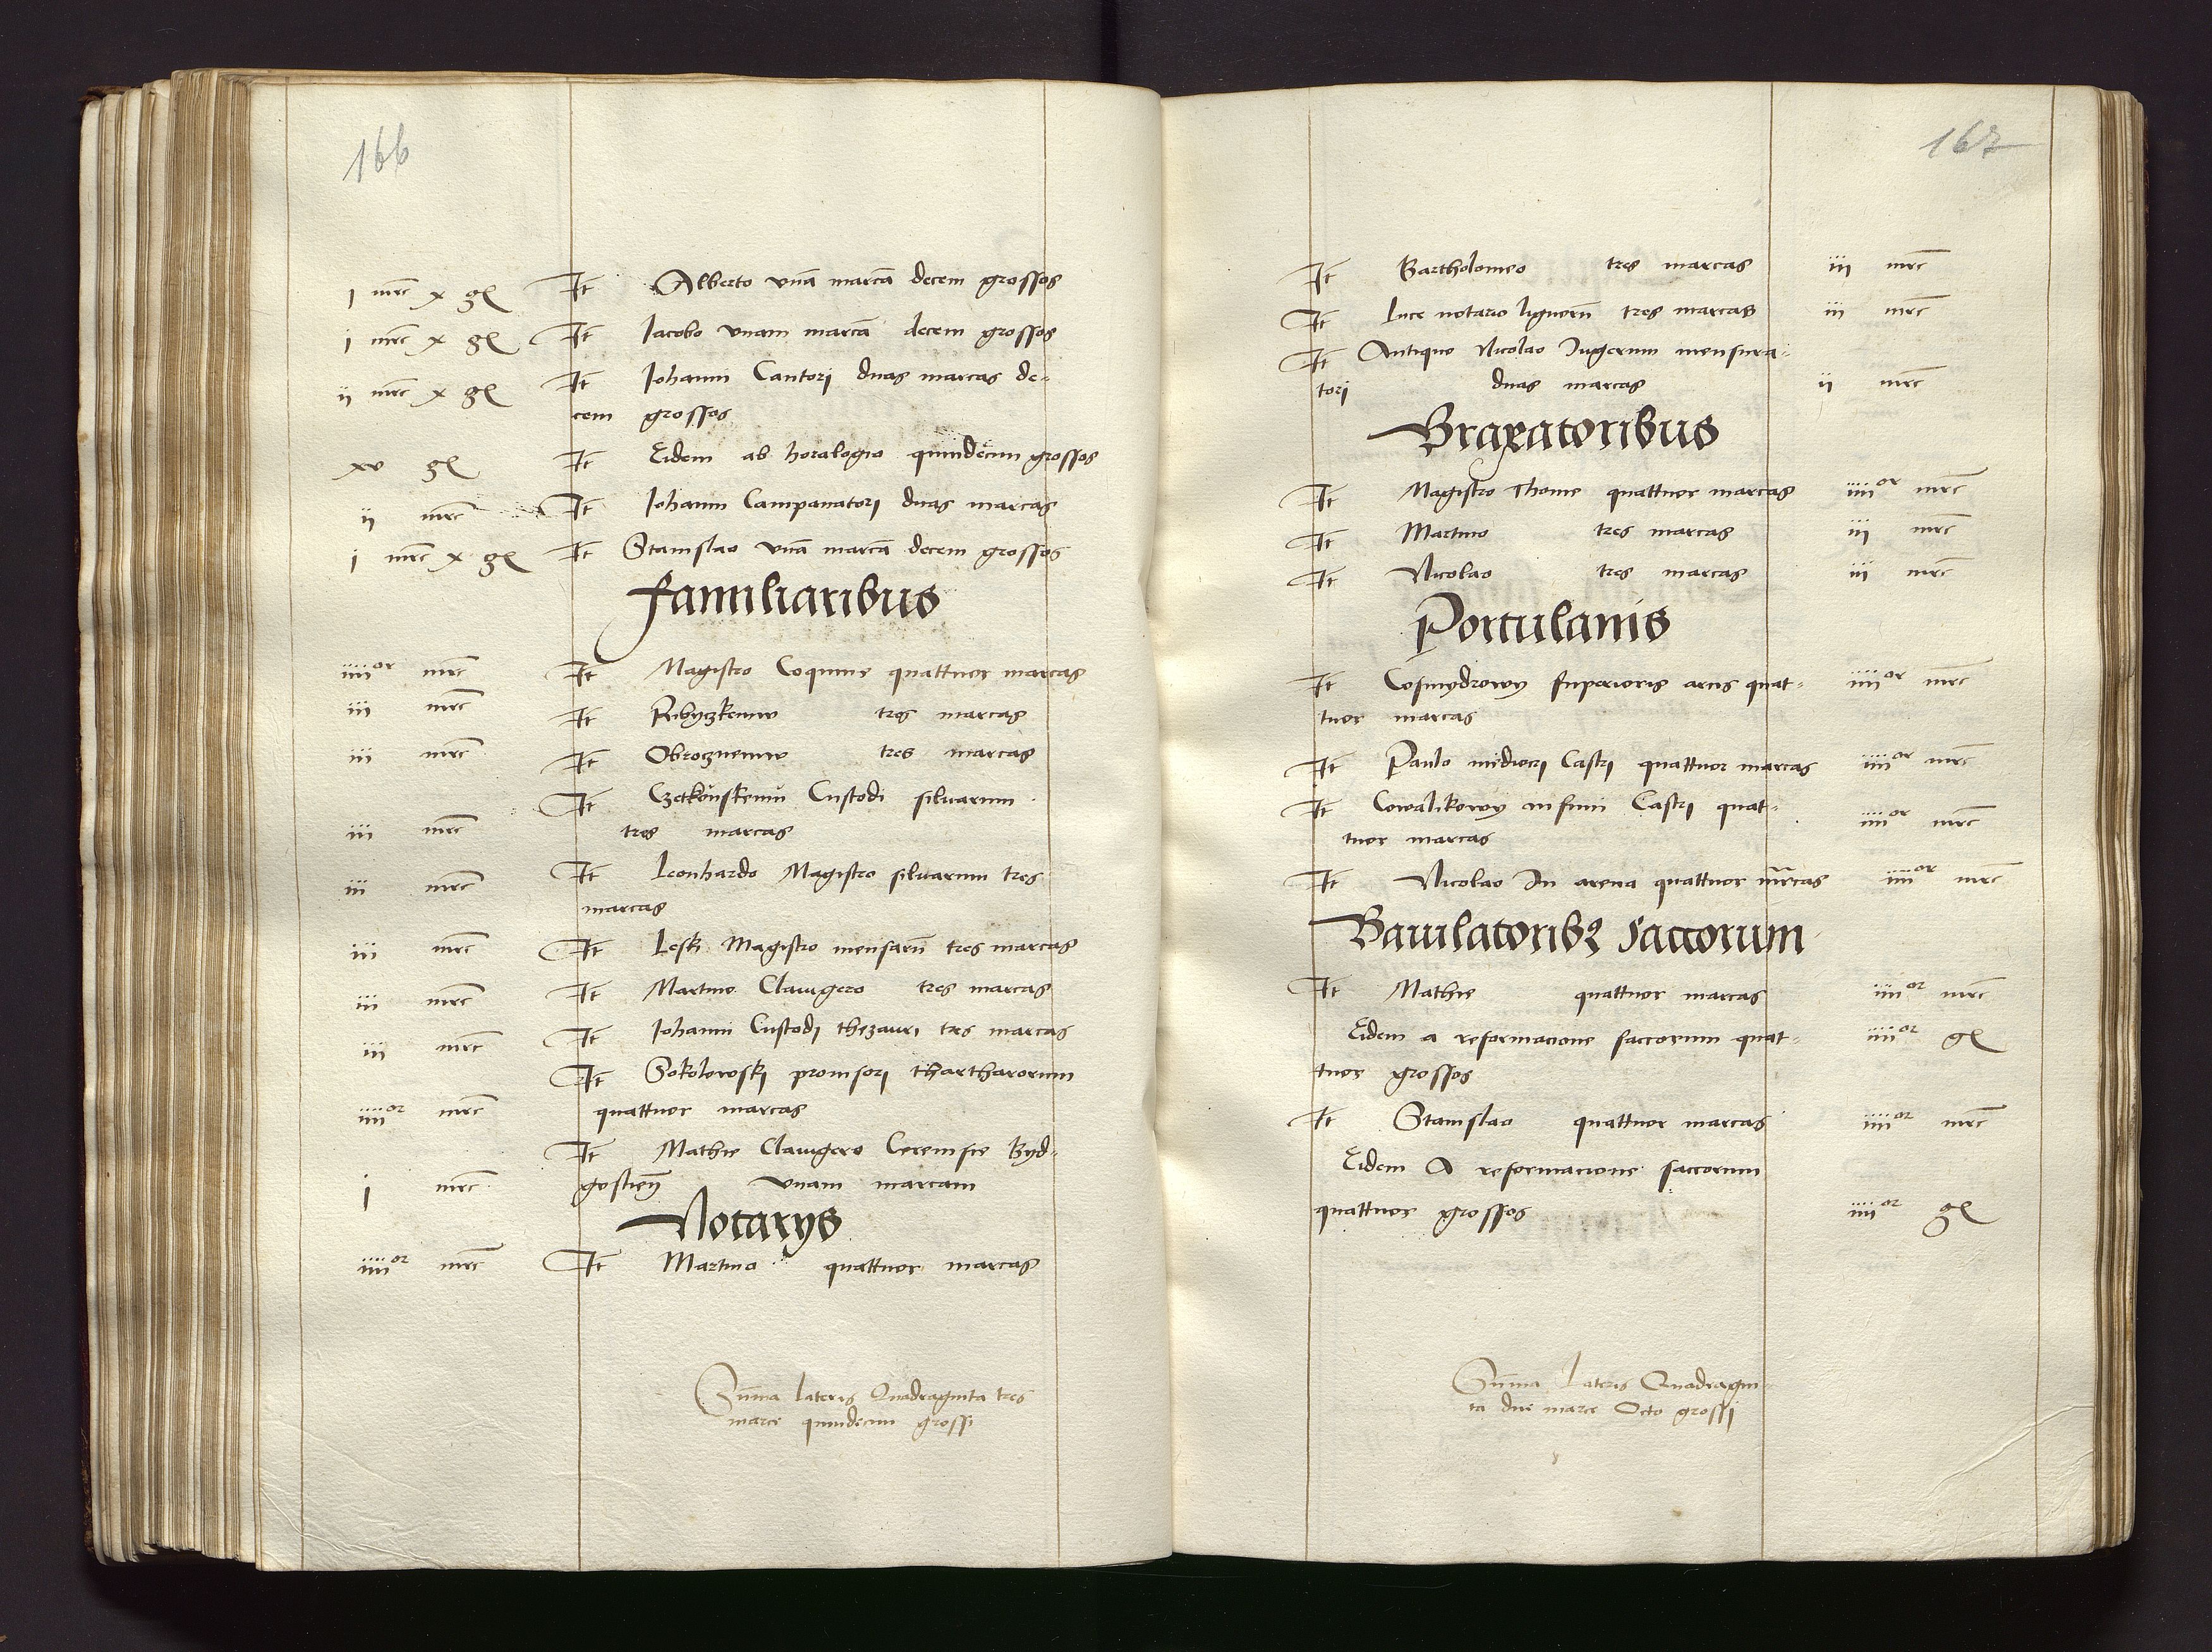 166
j mrc x gl It Alberto vnā marcā decem grossos
j mrc x gl It Iacobo vnam marcā decem grossos
ij mrc x gl It Iohanni Cantorj duas marcas de-
cem grossos
xv gl It Eidem ab horalogio quindecim grossos
ij mrc It Iohanni Campanatorj duas marcas
j mrc x gl It Stanislao vnā marcā decem grossos
familiaribus
iiiior mrc It Magistro Coquine quattuor marcas
iij mrc It Ribyzkemu tres marcas
iij mrc It Obrocznemu tres marcas
It Czetkonskemu Custodi siluarum
iij mrc tres marcas
iij mrc It Leonhardo Magistro siluarum tres
marcas
iij mrc It Lesk Magistro mensarū tres marcas
iij mrc It Martino Clauigero tres marcas
iij mrc It Iohanni Custodj thezaurj tres marcas
It Sokolowskj prouisorj thartharorum
iiiior mrc quattuor marcas
It Mathie Clauigero Cereuisie Byd-
j mrc gostien̄ vnam marcam
Notarys
iiiior mrc It Martino quattuor marcas
Sūma lateris Quadraginta tres
marce quindecim grossi
167
It Bartholomeo tres marcas iij mrc
It Luce notario lignorū tres marcas iij mrc
It Antiquo Nicolao Iugerum mensura-
tori duas marcas ij mrc
Braxatoribus
It Magistro Thome quattuor marcas iiiior mrc
It Martino tres marcas iij mrc
It Nicolao tres marcas iij mrc
Portulanis
It Cosmydrowy superioris arcis quat- iiiior mrc
tuor marcas
It Paulo mediocrj Castrj quattuor marcas iiiior mrc
It Cowalikowy infimi Castrj quat-
tuor marcas iiiior mrc
It Nicolao In arena quattuor mrcas iiiior mrc
Baiulatoribz saccorum
It Mathie quattuor marcas iiiior mrc
Eidem a reformacione saccorum quat- iiiior gl
tuor grossos
It Stanislao quattuor marcas iiiior mrc
Eidem A reformacione saccorum
quattuor grossos iiiior gl
Sūma Lateris Quadragin-
ta due marce Octo grossj